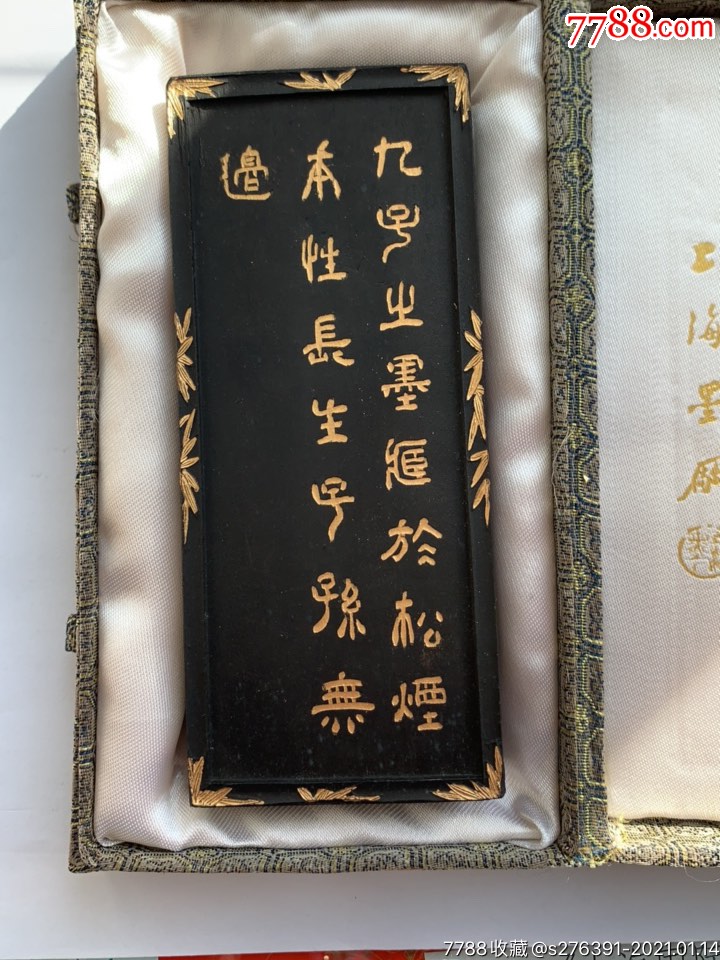 7788.com
九子之墨藏於松煙
本性長生子孫無
邊
上海墨厰
7788收藏@s276391-2021.01.14